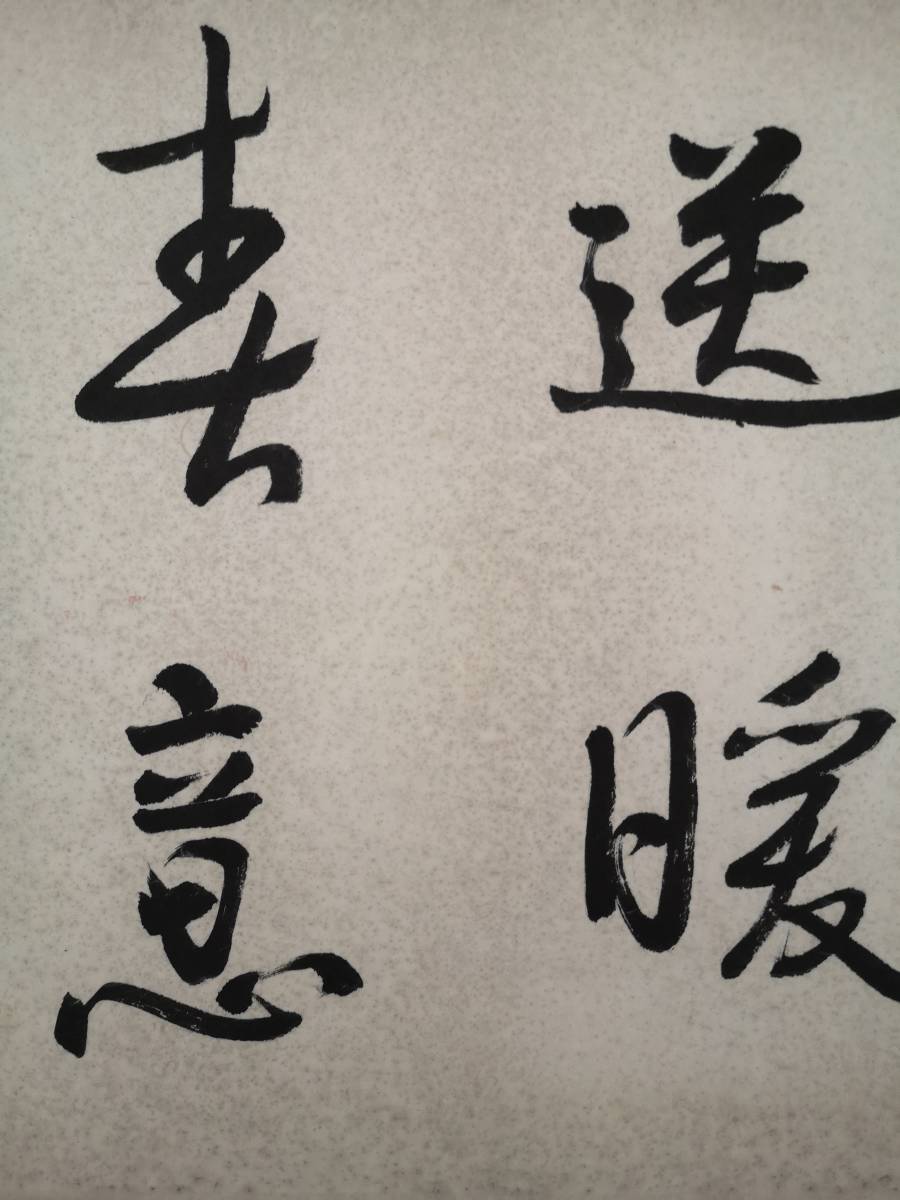 送暖
春意